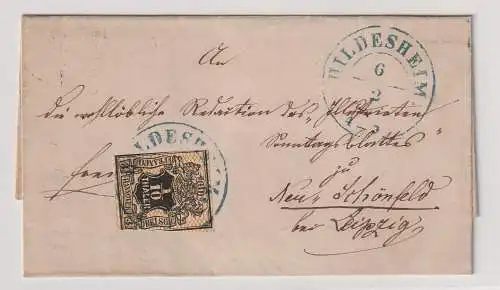 HILDESHEIM
6
2
An
die wohllöbliche Redaction des „Illustrirten
Sonntags Blattes“
zu
Neu-Schönfeld
bei Leipzig
frei
HILDESHEIM
10